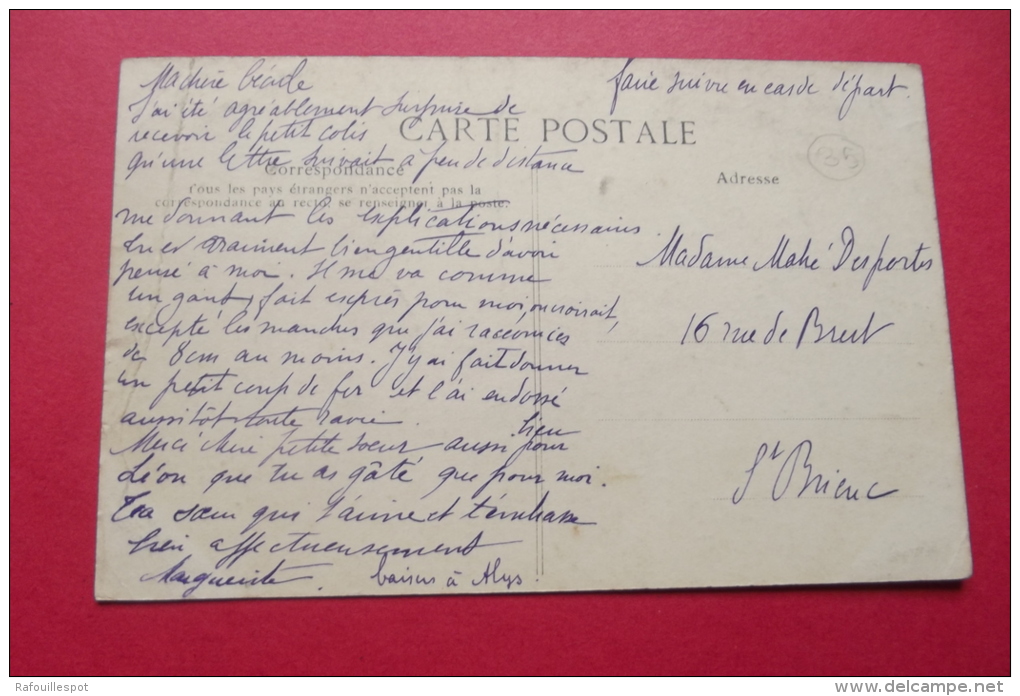 Ma chère Cécile
J'ai été agréablement surprise de
recevoir le petit colis
qu'une lettre suivait à peu de distance
me donnant les explications nécessaires.
tu es vraiment bien gentille d'avoir
pensé à moi. Il me va comme
un gant, fait exprès pour moi, on croirait,
excepté les manches que j'ai raccourcies
de 8cm au moins. J'y ai fait donner
un petit coup de fer et l'ai endossé
aussitôt toute ravie.
Merci chère petite soeur aussi bien pour
Léon que tu as gâté que pour moi.
Ta soeur qui t'aime et t'embrasse
bien affectueusement
Marguerite. baisers à Alys.
faire suivre en cas de départ.
CARTE POSTALE
Correspondance
Tous les pays étrangers n'acceptent pas la
correspondance au recto, se renseigner à la poste.
Adresse
Madame Mahé Desportes
16 rue de Brest
St Brieuc
Rafouillespot
www.delcampe.net